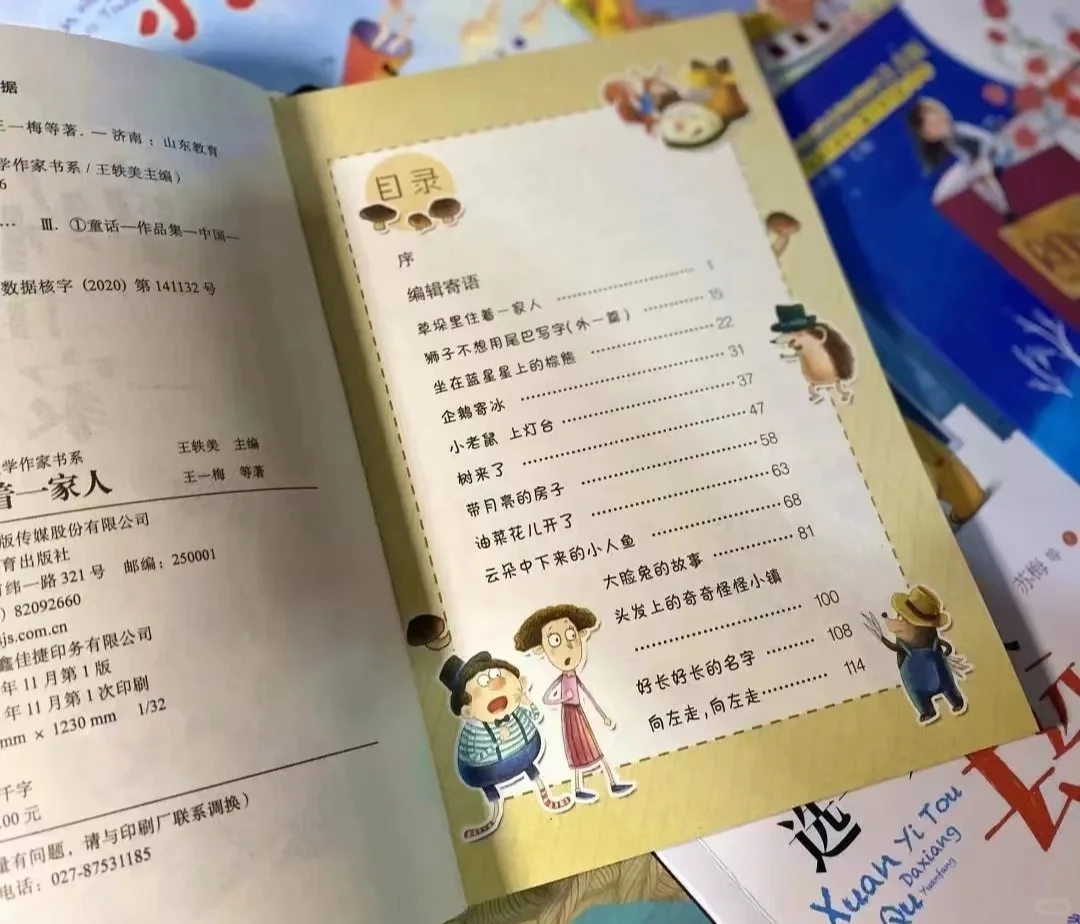 据
王一梅等著. — 济南 : 山东教育
学作家书系 / 王轶美主编)
6
… Ⅲ. ①童话—作品集—中国—
数据核字 (2020) 第 141132 号
学作家书系 王轶美 主编
着一家人 王一梅 等著
版传媒股份有限公司
育出版社
纬一路 321 号 邮编：250001
) 82092660
sjs.com.cn
鑫佳捷印务有限公司
年 11 月第 1 版
年 11 月第 1 次印刷
mm × 1230 mm 1/32
千字
.00 元
量有问题，请与印刷厂联系调换）
电话：027-87531185
目录
序
编辑寄语
草垛里住着一家人 ………… 1
狮子不想用尾巴写字(外一篇) ………… 15
坐在蓝星星上的棕熊 ………… 22
企鹅寄冰 ………… 31
小老鼠 上灯台 ………… 37
树来了 ………… 47
带月亮的房子 ………… 58
油菜花儿开了 ………… 63
云朵中下来的小人鱼 ………… 68
大脸兔的故事 ………… 81
头发上的奇奇怪怪小镇
………… 100
好长好长的名字 ………… 108
向左走,向左走 ………… 114
苏梅
选
Xuan Yi Tou
Daxiang
Yuanfang